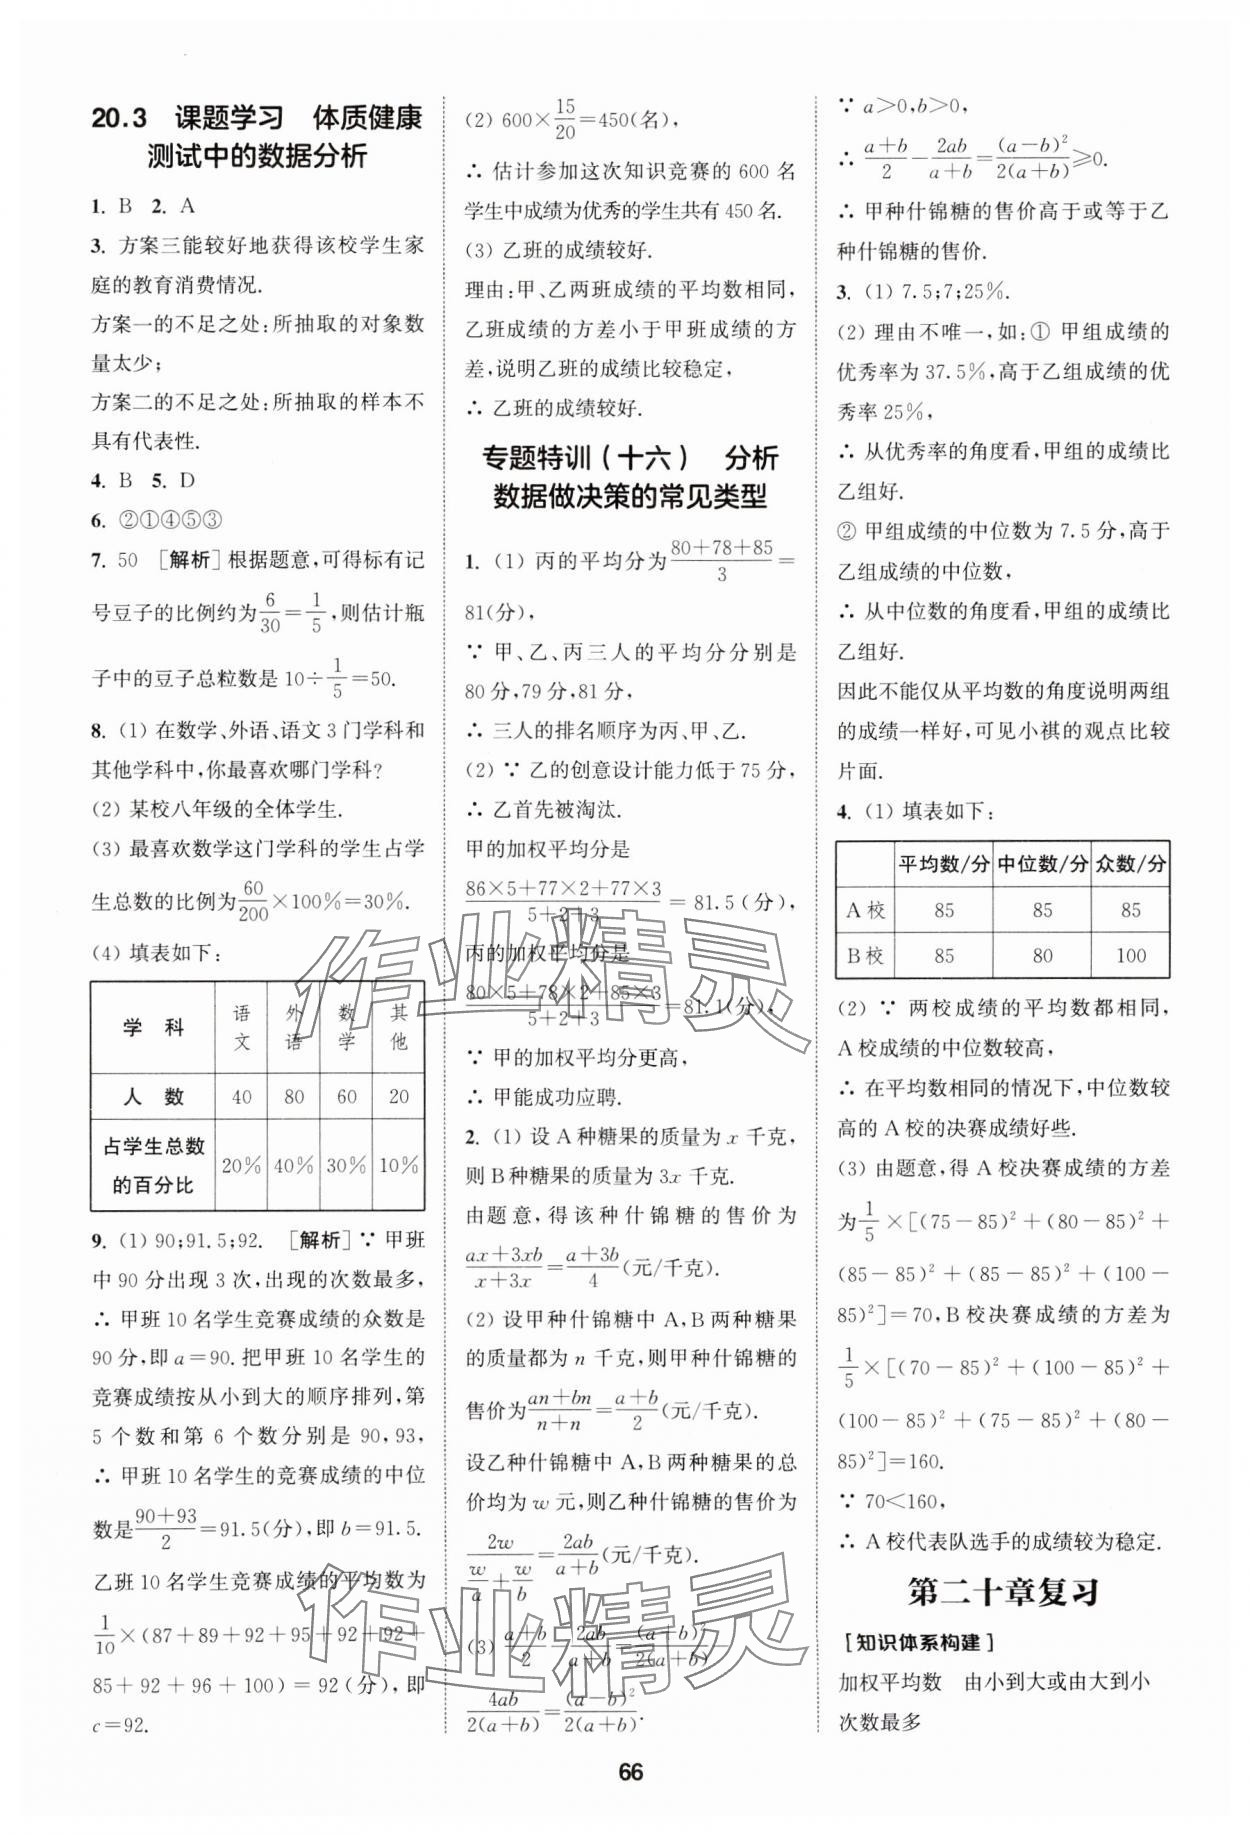 20.3　课题学习　体质健康
测试中的数据分析
1. B　2. A
3. 方案三能较好地获得该校学生家
庭的教育消费情况.
方案一的不足之处:所抽取的对象数
量太少;
方案二的不足之处:所抽取的样本不
具有代表性.
4. B　5. D
6. ②①④⑤③
7. 50　[解析]根据题意,可得标有记
号豆子的比例约为6/30=1/5,则估计瓶
子中的豆子总粒数是10÷1/5=50.
8. (1) 在数学、外语、语文3门学科和
其他学科中,你最喜欢哪门学科?
(2) 某校八年级的全体学生.
(3) 最喜欢数学这门学科的学生占学
生总数的比例为60/200×100%=30%.
(4) 填表如下:
学　科　语文　外语　数学　其他
人　数　40　80　60　20
占学生总数的百分比　20%　40%　30%　10%
9. (1) 90;91.5;92.　[解析]∵ 甲班
中90分出现3次,出现的次数最多,
∴ 甲班10名学生竞赛成绩的众数是
90分,即a=90.把甲班10名学生的
竞赛成绩按从小到大的顺序排列,第
5个数和第6个数分别是90,93,
∴ 甲班10名学生的竞赛成绩的中位
数是(90+93)/2=91.5(分),即b=91.5.
乙班10名学生竞赛成绩的平均数为
1/10×(87+89+92+95+92+92+
85+92+96+100)=92(分),即
c=92.
(2) 600×15/20=450(名),
∴ 估计参加这次知识竞赛的600名
学生中成绩为优秀的学生共有450名.
(3) 乙班的成绩较好.
理由:甲、乙两班成绩的平均数相同,
乙班成绩的方差小于甲班成绩的方
差,说明乙班的成绩比较稳定,
∴ 乙班的成绩较好.
专题特训(十六)　分析
数据做决策的常见类型
1. (1) 丙的平均分为(80+78+85)/3=
81(分),
∵ 甲、乙、丙三人的平均分分别是
80分,79分,81分,
∴ 三人的排名顺序为丙、甲、乙.
(2) ∵ 乙的创意设计能力低于75分,
∴ 乙首先被淘汰.
甲的加权平均分是
(86×5+77×2+77×3)/(5+2+3)=81.5(分),
丙的加权平均分是
(80×5+78×2+85×3)/(5+2+3)=81.1(分),
∵ 甲的加权平均分更高,
∴ 甲能成功应聘.
2. (1) 设A种糖果的质量为x千克,
则B种糖果的质量为3x千克.
由题意,得该种什锦糖的售价为
(ax+3xb)/(x+3x)=(a+3b)/4(元/千克).
(2) 设甲种什锦糖中A,B两种糖果
的质量都为n千克,则甲种什锦糖的
售价为(an+bn)/(n+n)=(a+b)/2(元/千克).
设乙种什锦糖中A,B两种糖果的总
价均为w元,则乙种什锦糖的售价为
2w/(w/a+w/b)=2ab/(a+b)(元/千克).
(3) (a+b)/2-2ab/(a+b)=(a+b)²/2(a+b)-
4ab/2(a+b)=(a-b)²/2(a+b).
∵ a>0,b>0,
∴ (a+b)/2-2ab/(a+b)=(a-b)²/2(a+b)≥0.
∴ 甲种什锦糖的售价高于或等于乙
种什锦糖的售价.
3. (1) 7.5;7;25%.
(2) 理由不唯一,如:① 甲组成绩的
优秀率为37.5%,高于乙组成绩的优
秀率25%,
∴ 从优秀率的角度看,甲组的成绩比
乙组好.
② 甲组成绩的中位数为7.5分,高于
乙组成绩的中位数,
∴ 从中位数的角度看,甲组的成绩比
乙组好.
因此不能仅从平均数的角度说明两组
的成绩一样好,可见小祺的观点比较
片面.
4. (1) 填表如下:
平均数/分　中位数/分　众数/分
A校　85　85　85
B校　85　80　100
(2) ∵ 两校成绩的平均数都相同,
A校成绩的中位数较高,
∴ 在平均数相同的情况下,中位数较
高的A校的决赛成绩好些.
(3) 由题意,得A校决赛成绩的方差
为1/5×[(75-85)²+(80-85)²+
(85-85)²+(85-85)²+(100-
85)²]=70,B校决赛成绩的方差为
1/5×[(70-85)²+(100-85)²+
(100-85)²+(75-85)²+(80-
85)²]=160.
∵ 70<160,
∴ A校代表队选手的成绩较为稳定.
第二十章复习
[知识体系构建]
加权平均数　由小到大或由大到小
次数最多
66
作业精灵
作业精灵